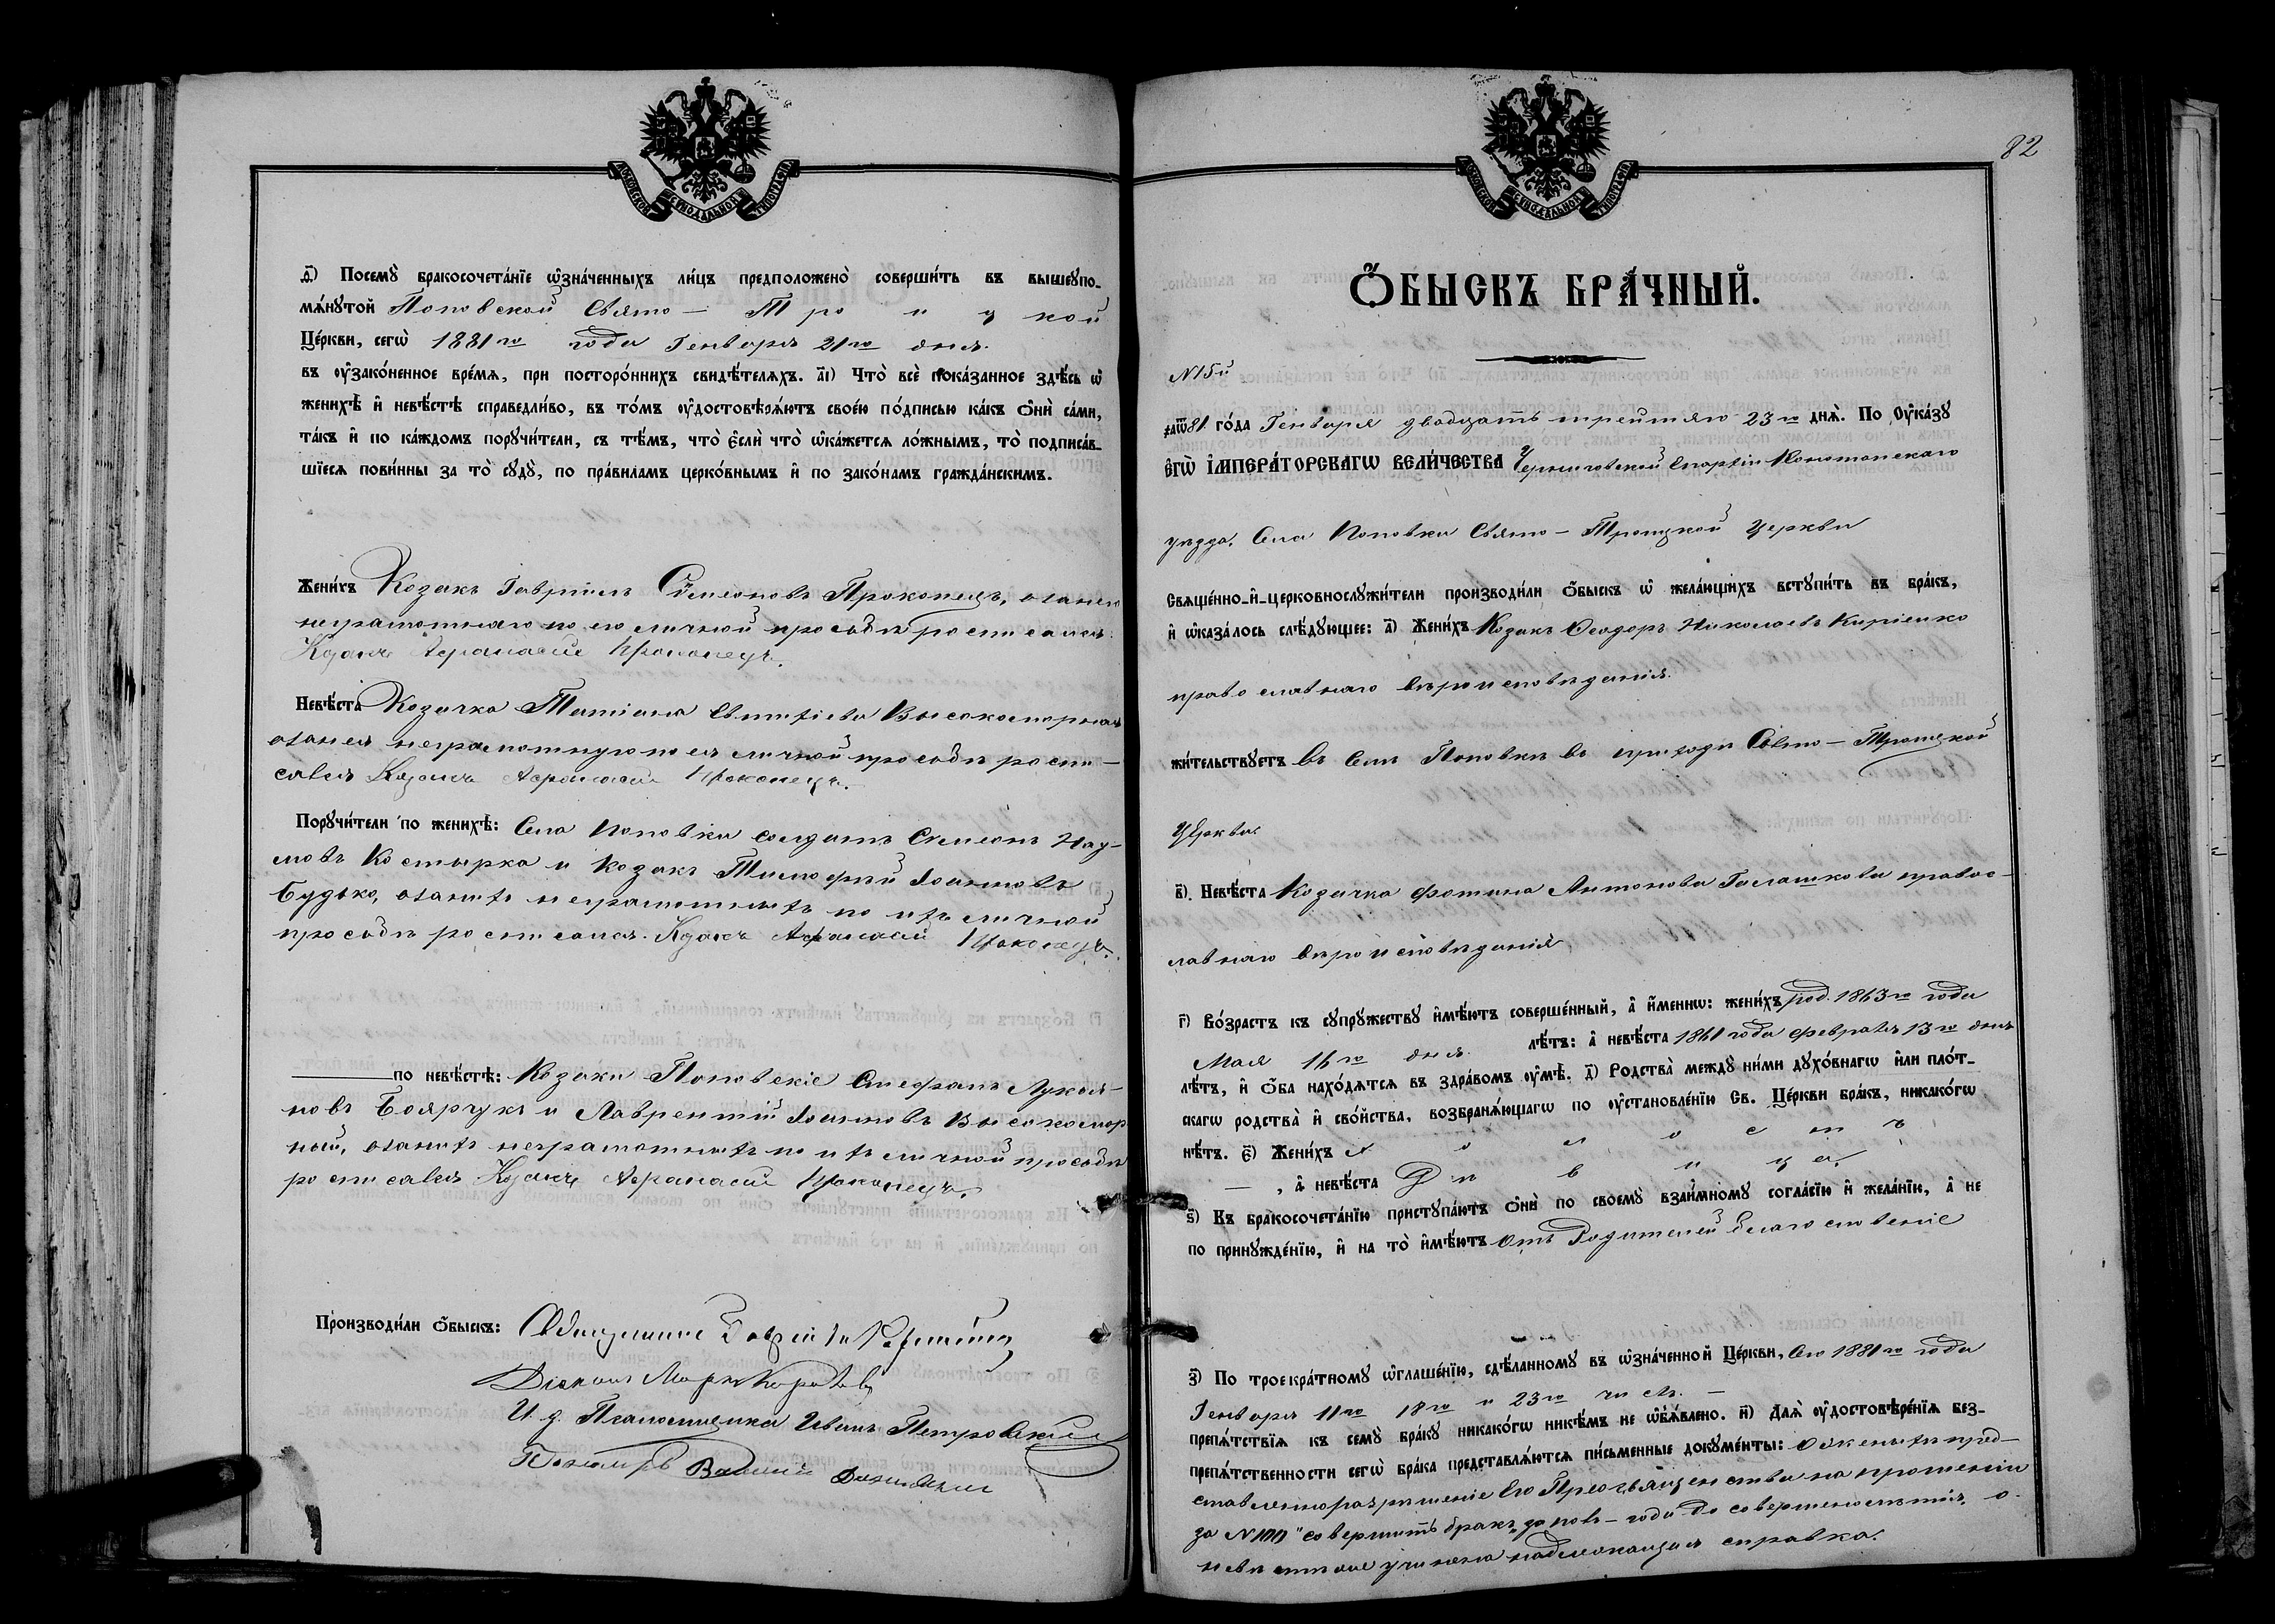 МОСКОВСКОЙ СѴНОДАЛЬНОЙ ТИПОГРАФІИ
і҃) Посемꙋ̀ бракосочета́нїе ѡ҆зна́ченныхъ ли́цъ предположено̀ соверши́ть въ вышеꙋпо-
мѧ́нꙋтой Поповской Свято-Троицкой
Це́ркви, сегѡ̀ 1881го года Генваря 21го дня.
въ ᲂу҆зако́ненное вре́мѧ, при посторо́ннихъ свидѣ́телѧхъ. а҃і) Что̀ всѐ пока́занное здѣ́сь ѡ҆
женихѣ̀ и҆ невѣ́стѣ справедли́во, въ то́мъ ᲂу҆достовѣрѧ́ютъ свое́ю по́дписью ка́къ ѻ҆нѝ са́ми,
та́къ и҆ по ка́ждомъ порꙋчи́тели, съ тѣ́мъ, что̀ є҆́сли что̀ ѡ҆ка́жетсѧ ло́жнымъ, то̀ подписа́в-
шїесѧ пови́нны за то̀ сꙋдꙋ̀, по пра́виламъ церко́внымъ и҆ по зако́намъ гражда́нскимъ.
Жени́хъ Козакъ Гавріилъ Сѵмеоновъ Прокопецъ, а за него
неграмотнаго по его личной просьбѣ росписался
Козакъ Афанасій Прокопецъ.
Невѣ́ста Козачка Татіана Высокоморная
а за нея неграмотную по ея личной просьбѣ роспи-
сался Козакъ Афанасій Прокопецъ.
Порꙋчи́тели по женихѣ̀: Села Поповки солдатъ Сѵмеонъ Нау-
мовъ Костырка и Козакъ Тимофѣй Іоанновъ
Будько, а за нихъ неграмотныхъ по ихъ личной
просьбѣ росписался. Козакъ Афанасій Прокопецъ.
по невѣ́стѣ: Козаки Поповскіе Стефанъ Лукья-
новъ Боярчукъ и Лаврентій Іоанновъ Высокомор-
ный, а за нихъ неграмотныхъ по ихъ личной просьбѣ
росписался Козакъ Афанасій Прокопецъ.
Производи́ли ѻ҆́быскъ: Священникъ
Діаконъ Маркъ
И. д. Псаломщика Иванъ Петровскій
Пономарь Василій
82
МОСКОВСКОЙ СѴНОДАЛЬНОЙ ТИПОГРАФІИ
Ѻ҆́БЫСКЪ БРА́ЧНЫЙ.
N15й
҂аѿ81 го́да Генваря двадцать третьяго 23го днѧ̀. По Оу҆ка́зꙋ
Є҆гѡ̀ И҆МПЕРА́ТОРСКАГѠ ВЕЛИ́ЧЕСТВА Черниговской Епархіи Конотопскаго
уѣзда. Села Поповки Свято-Троицкой Церкви
Свѧще́нно-и҆-церковнослꙋжи́тели производи́ли ѻ҆́быскъ ѡ҆ жела́ющихъ встꙋпи́ть въ бра́къ,
и҆ ѡ҆каза́лось слѣ́дꙋющее: а҃) Жени́хъ Козакъ Ѳеодоръ Николаевъ Киріенко
православнаго вѣроисповѣданія.
жи́тельствꙋетъ въ Селѣ Поповкѣ въ приходѣ Свято-Троицкой
Церкви.
в҃). Невѣ́ста Козачка Фотина Антонова Голашкова правос-
лавнаго вѣроисповѣданія
г҃) Во́зрастъ къ сꙋпрꙋ́жествꙋ и҆мѣ́ютъ соверше́нный, а҆ и҆́меннѡ: жени́хъ род. 1863го года
Мая 16го дня лѣ́тъ: а҆ невѣ́ста 1861 года февраля 13го дня
лѣ́тъ, и҆ ѻ҆́ба нахо́дѧтсѧ въ здра́вомъ ᲂу҆мѣ̀. д҃) Родства̀ междꙋ̀ ни́ми дꙋхо́внагѡ и҆ли пло́т-
скагѡ родства̀ и҆ сво́йства, возбранѧ́ющагѡ по ᲂу҆становле́нїю Св. Це́ркви бра́къ, никако́гѡ
нѣ́тъ. є҃) Жени́хъ холостъ
—, а҆ невѣ́ста Дѣвица
ѕ҃) Къ бракосочета́нїю пристꙋпа́ютъ ѻ҆нѝ по своемꙋ̀ взаи́мномꙋ согла́сїю и҆ жела́нїю, а҆ не
по принꙋжде́нїю, и҆ на то̀ и҆мѣ́ютъ отъ Родителей благословеніе
з҃) По троекра́тномꙋ ѡ҆глаше́нїю, сдѣ́ланномꙋ въ ѡ҆зна́ченной Це́ркви, сего 1881го года
Генваря 11го 18го и 23го чиселъ. –
препѧ́тствїѧ къ семꙋ̀ бра́кꙋ никако́гѡ никѣ́мъ не ѡ҆б̾ѧ́влено. и҃) Длѧ̀ ᲂу҆достовѣ́ренїѧ без-
препѧ́тственности сегѡ̀ бра́ка представлѧ́ютсѧ пи́сьменные докꙋме́нты: о женихѣ пред-
ставлено разрѣшеніе Его Преосвященства на прошеніи
за N100 „совершить бракъ за полъ-года до совершеннолѣтія, о
невѣстѣ же учинена надлежащая справка.